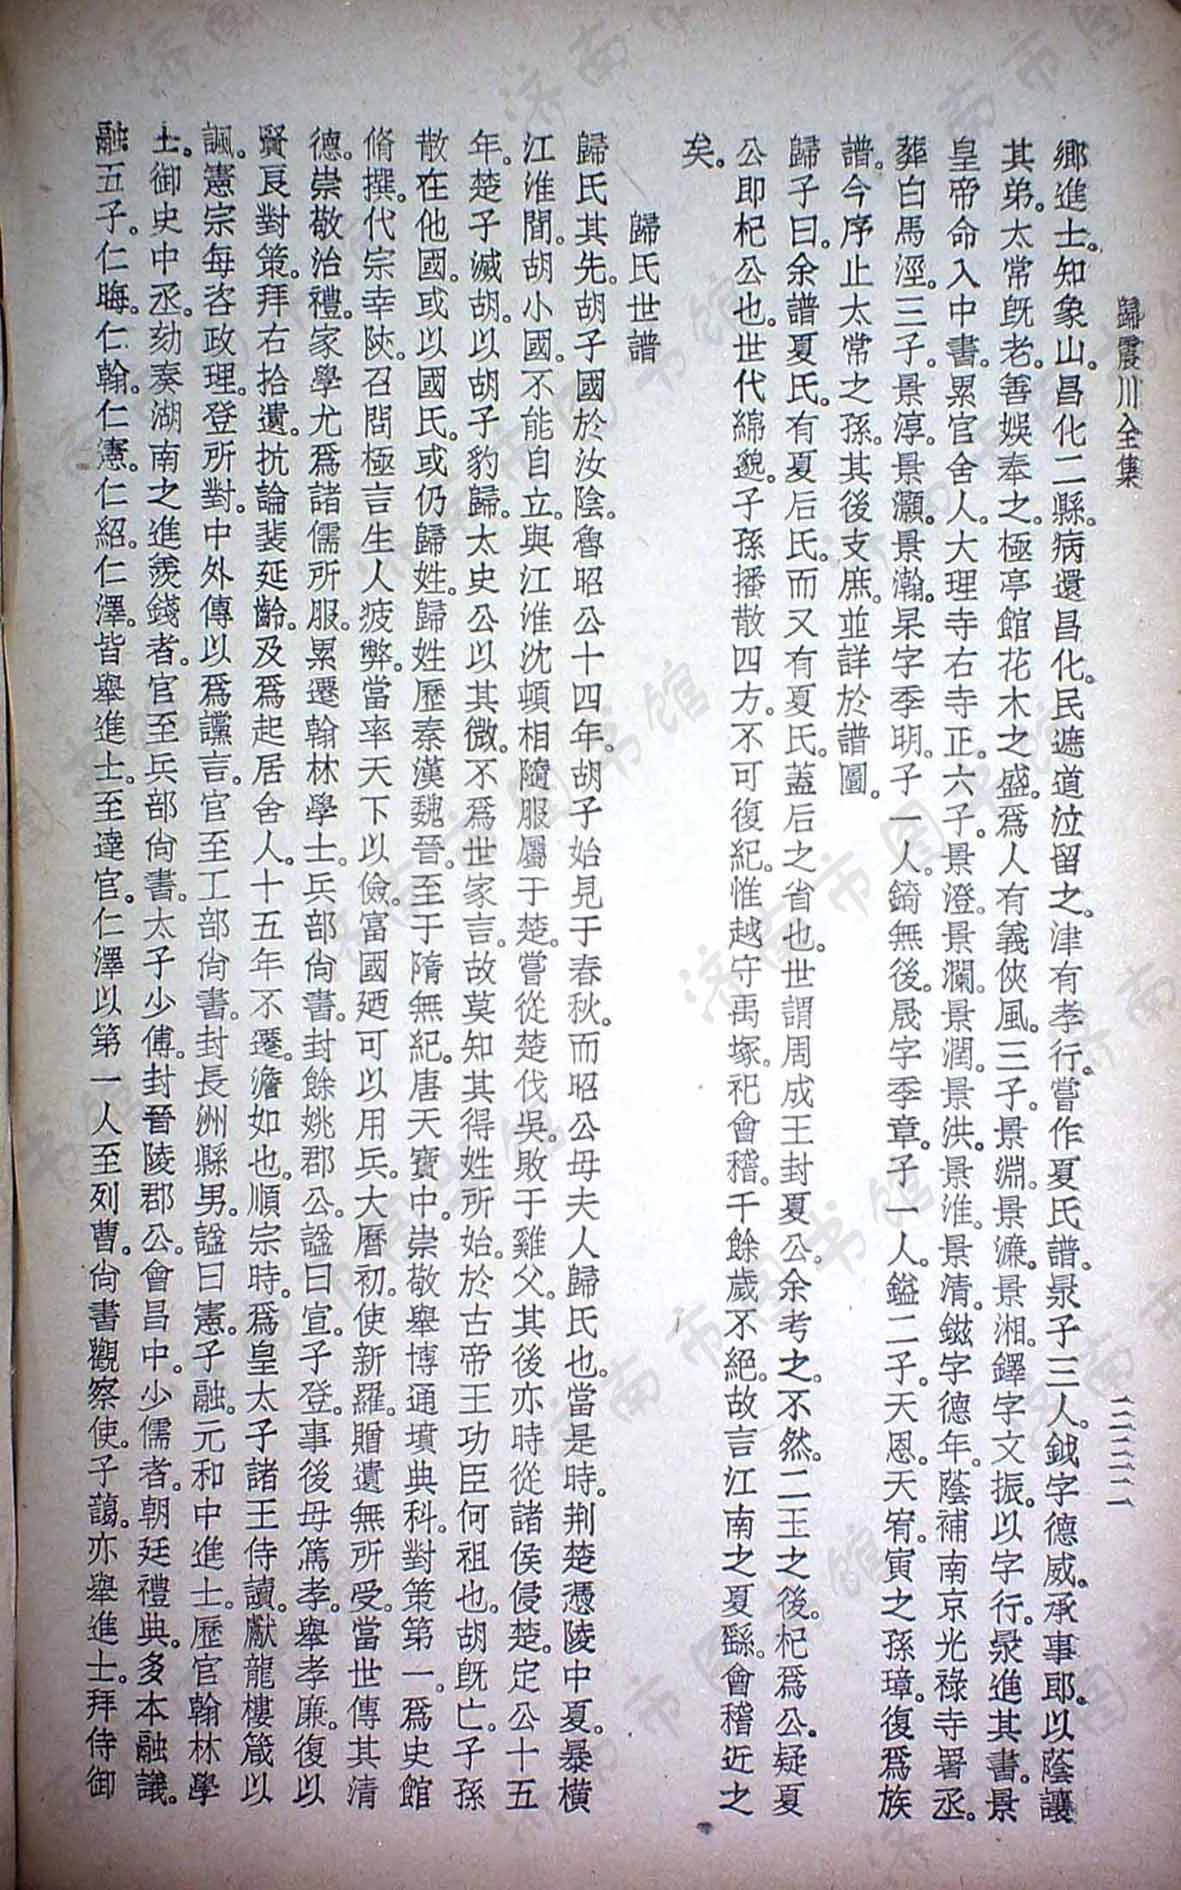 歸震川全集
三三三
鄉進士。知象山。昌化二縣。病還昌化。民遮道泣留之。津有孝行。嘗作夏氏譜。景子三人。鉞字德威。承事郎。以蔭讓
其弟。太常旣老。善娛奉之。極亭館花木之盛。爲人有義俠風。三子。景淵。景濂。景湘。鐸字文振。以字行。景進其書。景
皇帝命入中書。累官舍人。大理寺右寺正。六子。景澄。景瀾。景潤。景洪。景淮。景清。鎡字德年。蔭補南京光祿寺署丞。
葬白馬涇。三子。景淳。景灝。景瀚。杲字季明。子一人。錡無後。晟字季章。子一人。鎰二子。天恩。天宥。寅之孫璋。復爲族
譜。今序止太常之孫。其後支庶。並詳於譜圖。
歸子曰。余譜夏氏。有夏后氏。而又有夏氏。蓋后之省也。世謂周成王封夏公。余考之。不然。二王之後。杞爲公。疑夏
公即杞公也。世代綿邈。子孫播散四方。不可復紀。惟越守禹塚。祀會稽。千餘歲不絕。故言江南之夏繇。會稽近之
矣。
歸氏世譜
歸氏其先。胡子國於汝陰。魯昭公十四年。胡子始見于春秋。而昭公母夫人歸氏也。當是時。荆楚憑陵中夏。暴橫
江淮間。胡小國。不能自立。與江淮沈頓相隨服屬于楚。嘗從楚伐吳。敗于雞父。其後亦時從諸侯侵楚。定公十五
年。楚子滅胡。以胡子豹歸。太史公以其微。不爲世家言。故莫知其得姓所始。於古帝王功臣何祖也。胡旣亡。子孫
散在他國。或以國氏。或仍歸姓。歸姓歷秦漢魏晉。至于隋無紀。唐天寶中。崇敬舉博通墳典科。對策第一。爲史館
脩撰。代宗幸陝。召問極言生人疲弊。當率天下以儉。富國廼可以用兵。大曆初。使新羅。贈遺無所受。當世傳其清
德。崇敬治禮。家學尤爲諸儒所服。累遷翰林學士。兵部尙書。封餘姚郡公。諡曰宣。子登。事後母篤孝。舉孝廉。復以
賢良對策。拜右拾遺。抗論裴延齡。及爲起居舍人。十五年不遷。澹如也。順宗時。爲皇太子諸王侍讀。獻龍樓箴以
諷。憲宗每咨政理。登所對。中外傳以爲讜言。官至工部尙書。封長洲縣男。諡曰憲。子融。元和中進士。歷官翰林學
士。御史中丞。劾奏湖南之進羨錢者。官至兵部尙書。太子少傅。封晉陵郡公。會昌中。少儒者。朝廷禮典。多本融議。
融五子。仁晦。仁翰。仁憲。仁紹。仁澤。皆舉進士。至達官。仁澤以第一人至列曹。尙書觀察使。子藹。亦舉進士。拜侍御